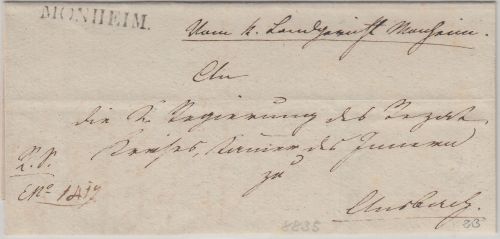 MONHEIM.
Vom k. Landgericht Monheim.
An
die k. Regierung des Rezat
Kreises, Kammer des Innern
zu
R. S.
Ansbach.
8835